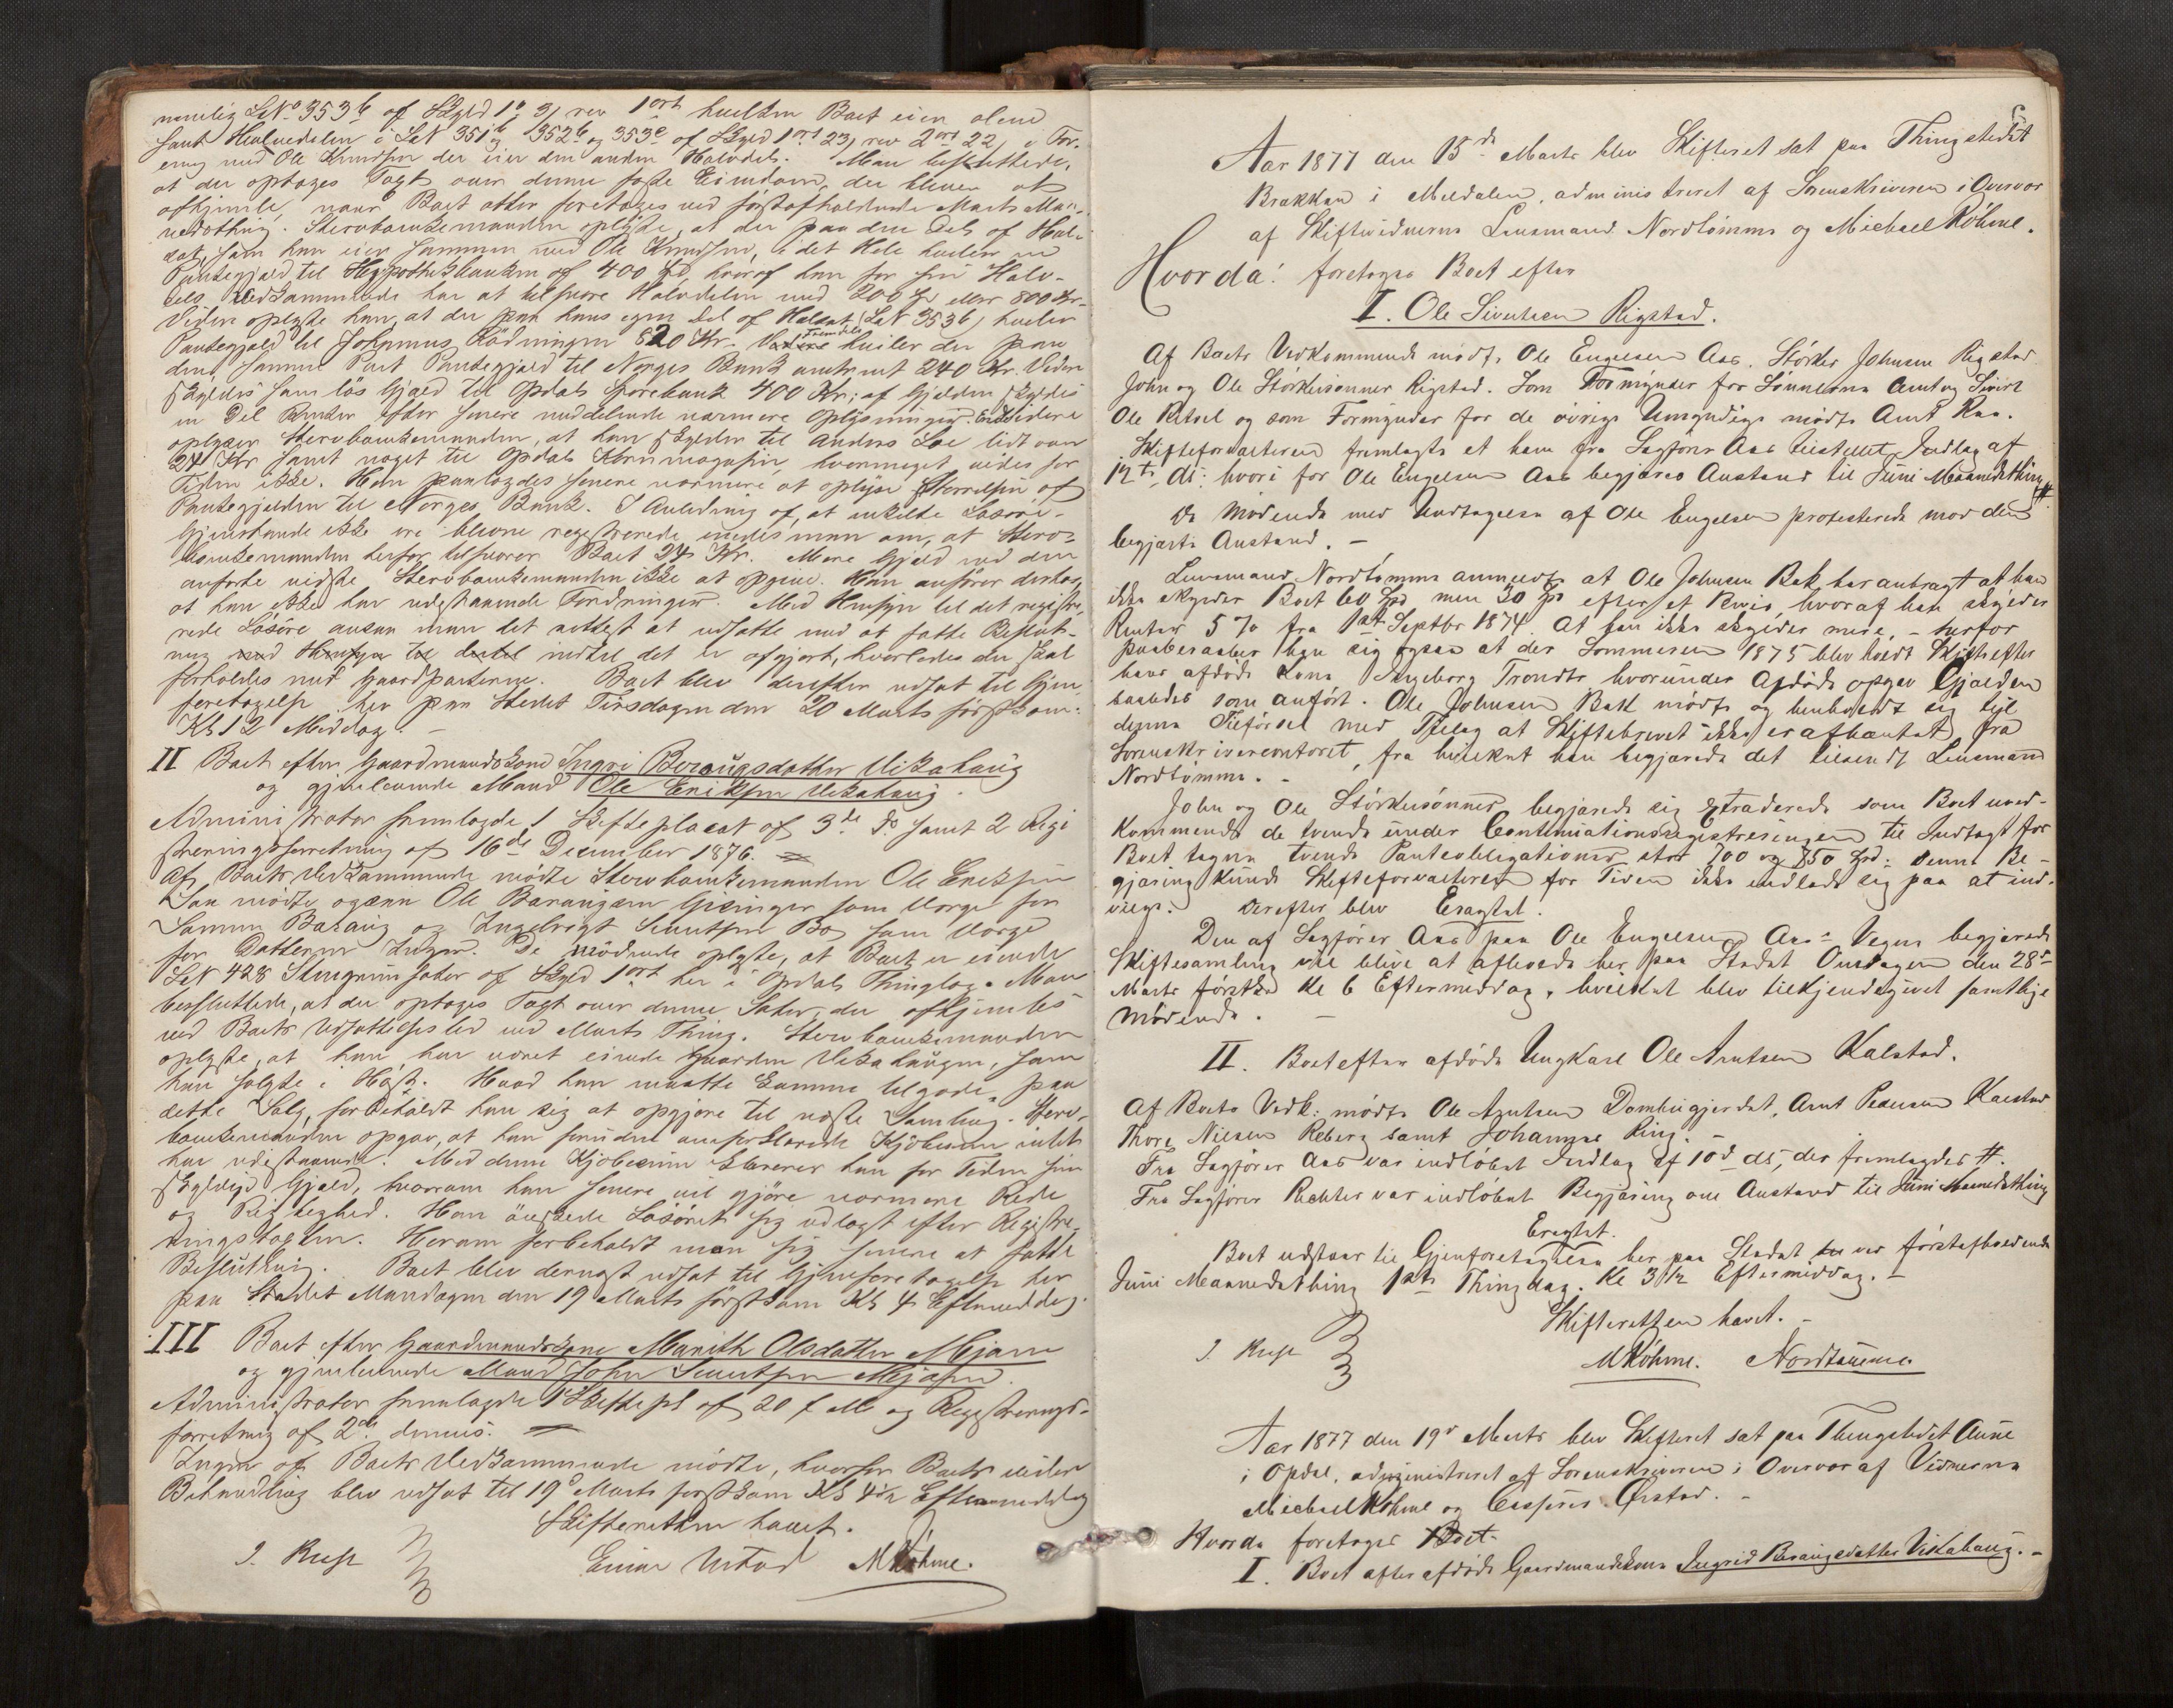 nemlig LNo 353b af Skyld 1 " 3, rev 1ort hvilken Boet eier alene
samt Halvedelen i LN 351b og 352b og 353c af Skyld 1ort 23, rev 2ort 22, i For-
ening med Ole Knudsen der eier den anden Halvdel. Man besluttede,
at der optages Taxt over denne faste Eiendom, der bliver at
afhjemle, naar Boet atter foretages ved førstafholdende Marts Maa-
nedsthing. Stervboenkemanden oplyste, at der paa den Del af
som han eier sammen med Ole Knudsen, i det Hele hviler en
Pantegjæld til Hypothekbanken af 400 Spd, hvoraf han for sin Halv-
dels Vedkommende har at tilsvare Halvdelen med 200 Sp eller 800 Kr.
Videre oplyste han, at der paa hans egen Del af (LN 353b) hviler
Pantegjæld til Johannes Rødningen 820 Kr. Fremdeles hviler der paa
den samme Part Pantegjæld til Norges Bank omtrent 240 Kr. Videre
skyldes som løs Gjæld til Opdals Sparebank 400 Kr; af Gjælden skyldes
en Del Renter efter senere meddelende nærmere Oplysninger. Endvidere
oplyser Stervboenkemanden, at han skylder til Anders Loe lidt over
24 Kr samt noget til Opdals Kornmagasin, hvormeget vides for
Tiden ikke. Han paalagdes senere nærmere at oplyse Størrelsen af
Pantegjælden til Norges Bank. I Anledning af, at enkelte Løsøre-
Gjenstande ikke ere blevne registrerede enedes man om, at Sterv-
boenkemanden herfor tilsvarer Boet 24 Kr. Mere Gjæld end den
anførte vidste Stervboenkemanden ikke at opgive. Han anfører derhos,
at han ikke har udestaaende Fordringer. Med Hensyn til det registre-
rede Løsøre ansaa man det rettest at udsætte med at fatte Beslut-
ning med Hensyn til dertil indtil det er afgjort, hvorledes der skal
forholdes med Gaardparterne. Boet blev derefter udsat til Gjen-
foretagelse her paa Stedet Tirsdagen den 20 Marts førstkom:
Kl 12 Middag.
II Boet efter Gaardmandskone Ingri Berøugsdatter Vikahaug
og gjenlevende Mand Ole Eriksen Vikahaug.
Administrator fremlagde 1 Skifteplacat af 3de Ds samt 2 Regi
streringsforretning af 16de December 1876.
Af Boets Vedkommende mødte Stervboenkemanden Ole Eriksen
Saa mødte ogsaa Ole som Værge for
Sønnen og Ingebrigt Sivertsen Bø som Værge
for Datteren Ingri. De mødende oplyste, at Boet er eiende
LN 428 af Skyld 1ort her i Opdals Thinglag. Man
besluttede, at der optages Taxt over denne Sæter, der afhjemles
ved Boets Udsættelse ved Marts Thing. Stervboenkemanden
oplyste, at han har været eiende Gaarden Vikahaugen, som
han solgte i Høst. Hvad han maatte komme tilgode paa
dette Salg, forbeholdt han sig at opgjøre til næste Samling. Sterv-
boenkemanden opgav, at han foruden Kjøbesum intet
har udestaaende. Med denne Kjøbesum klarerer han for Tiden sin
skyldige Gjæld, hvorom han senere vil gjøre nærmere Rede
og Rigtighed. Han ønskede Løsøret sig udlagt efter Registre-
ringstaxten. Herom forbeholdt man sig senere at fatte
Beslutning. Boet blev dernæst udsat til Gjenforetagelse her
paa Stedet Mandagen den 19 Marts førstkom Kl 4 Eftermiddag.
III Boet efter Gaardmandskone Marith Olsdatter Mjøen
og gjenlevende Mand John Sivertsen Mjøen.
Administrator fremlagde 1 Skiftepl af 20 f M og Registrerings-
forretning af 2den dennes.
Ingen af Boets Vedkommende mødte, hvorfor Boets videre
Behandling blev udsat til 19d Marts førstkom Kl 4½ Eftermiddag
Skifteretten hævet.
J. Krefft Einar Urstad MKöhme.
Aar 1877 den 15de Marts blev Skifteret sat paa Thingstedet
Brækken i Meldalen, administreret af Sorenskriveren i Overvær
af Skiftevidnerne Lensmand Nordtømme og Michael Köhme.
Hvorda: foretoges Boet efter
I. Ole Sivertsen Rigstad.
Af Boets Vedkommende mødte Ole Engelsen Aas. Størker Johnsen Rigstad
John og Ole Størkersønner Rigstad. Som Formynder for Sønnerne Arnt og Sivert
Ole Ratsel og som Formynder for de øvrige Umyndige mødte Arnt Raa.
Skifteforvalteren fremlagte et ham fra Sagfører Aas tilstillet Indlæg af
12te ds: hvori for Ole Engelsen Aas begjæres Anstand til Juni Maanedsthing #
De Mødende med Undtagelse af Ole Engelsen protesterede mod den
begjærte Anstand. —
Lensmand Nordtømme anmeldte at Ole Johnsen Bak har andraget at han
ikke skylder Boet 60 Spd men 30 Sp efter et Bevis, hvoraf han skylder
Renter 5 % fra 1ste Septbr 1874. At han ikke skylder mere, — herfor
paaberaaber han sig ogsaa at der Sommeren 1875 blev holdt Skifte efter
hans afdøde Kone Ingeborg Trondts hvorunder Afdøde opgav Gjælden
saaledes som anført. Ole Johnsen Bak mødte og henholdt sig til
denne Tilførsel med Tillæg at Skiftebrevet ikke er afhentet fra
Sorenskrivercontoret, fra hvilket han begjærede det tilsendt Lensmand
Nordtømme. —
John og Ole Størkersønner begjærede sig extraderede som Boet uved-
kommende de tvende under Continuationsregistreringen til Indtægt for
Boet tagne tvende Panteobligationer stor 700 og 850 Spd. Denne Be-
gjæring kunde Skifteforvalteren for Tiden ikke indlade sig paa at ind-
vilge. Derefter blev Eragtet.
Den af Sagfører Aas paa Ole Engelsen Aas's Vegne begjærede
Skiftesamling vil blive at afholde her paa Stedet Onsdagen den 28de
Marts førstk: Kl 6 Eftermiddag, hvilket blev tilkjendegivet samtlige
Mødende. —
II. Boet efter afdøde Ungkarl Ole Arntsen Kalstad.
Af Boets Vedk: mødte Ole Arntsen Dombugjerdet, Arnt Pedersen Kalstad
Thore Nielsen Reberg samt Johannes Ring. —
Fra Sagfører Aas var indløbet Indlæg af 10de ds, der fremlagdes #.
Fra Sagfører Richter var indløbet Begjæring om Anstand til Juni Maanedsthing
Eragtet.
Boet udstaar til Gjenforetagelse her paa Stedet ved førstafholdende
Juni Maanedsthing 1ste Thingdag. Kl 3½ Eftermiddag. —
Skifteretten hævet. —
J. Krefft MKöhme. Nordtømme.
Aar 1877 den 19de Marts blev Skifteret sat paa Thingstedet Aune
i Opdal, administreret af Sorenskriveren i Overvær af Vidnerne
Michael Köhme og Casper Ørstad. —
Hvorda foretoges Boet
I. Boet efter afdøde Gaardmandskone Ingrid Berøugsdatter Vikahaug. —